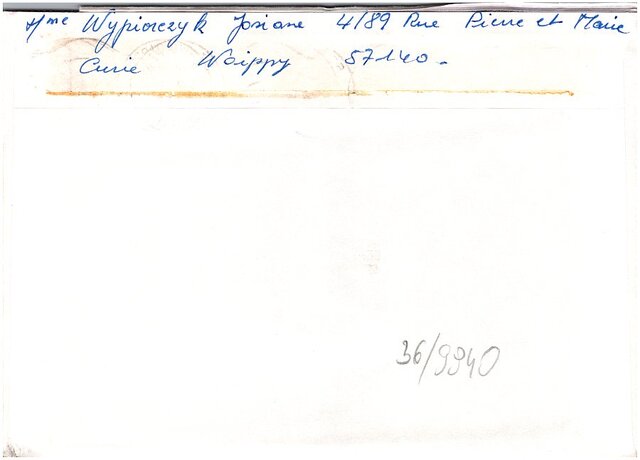 Mme Wypiorczyk Josiane 4/89 Rue Pierre et Marie
Curie Woippy 57140.
36/9940